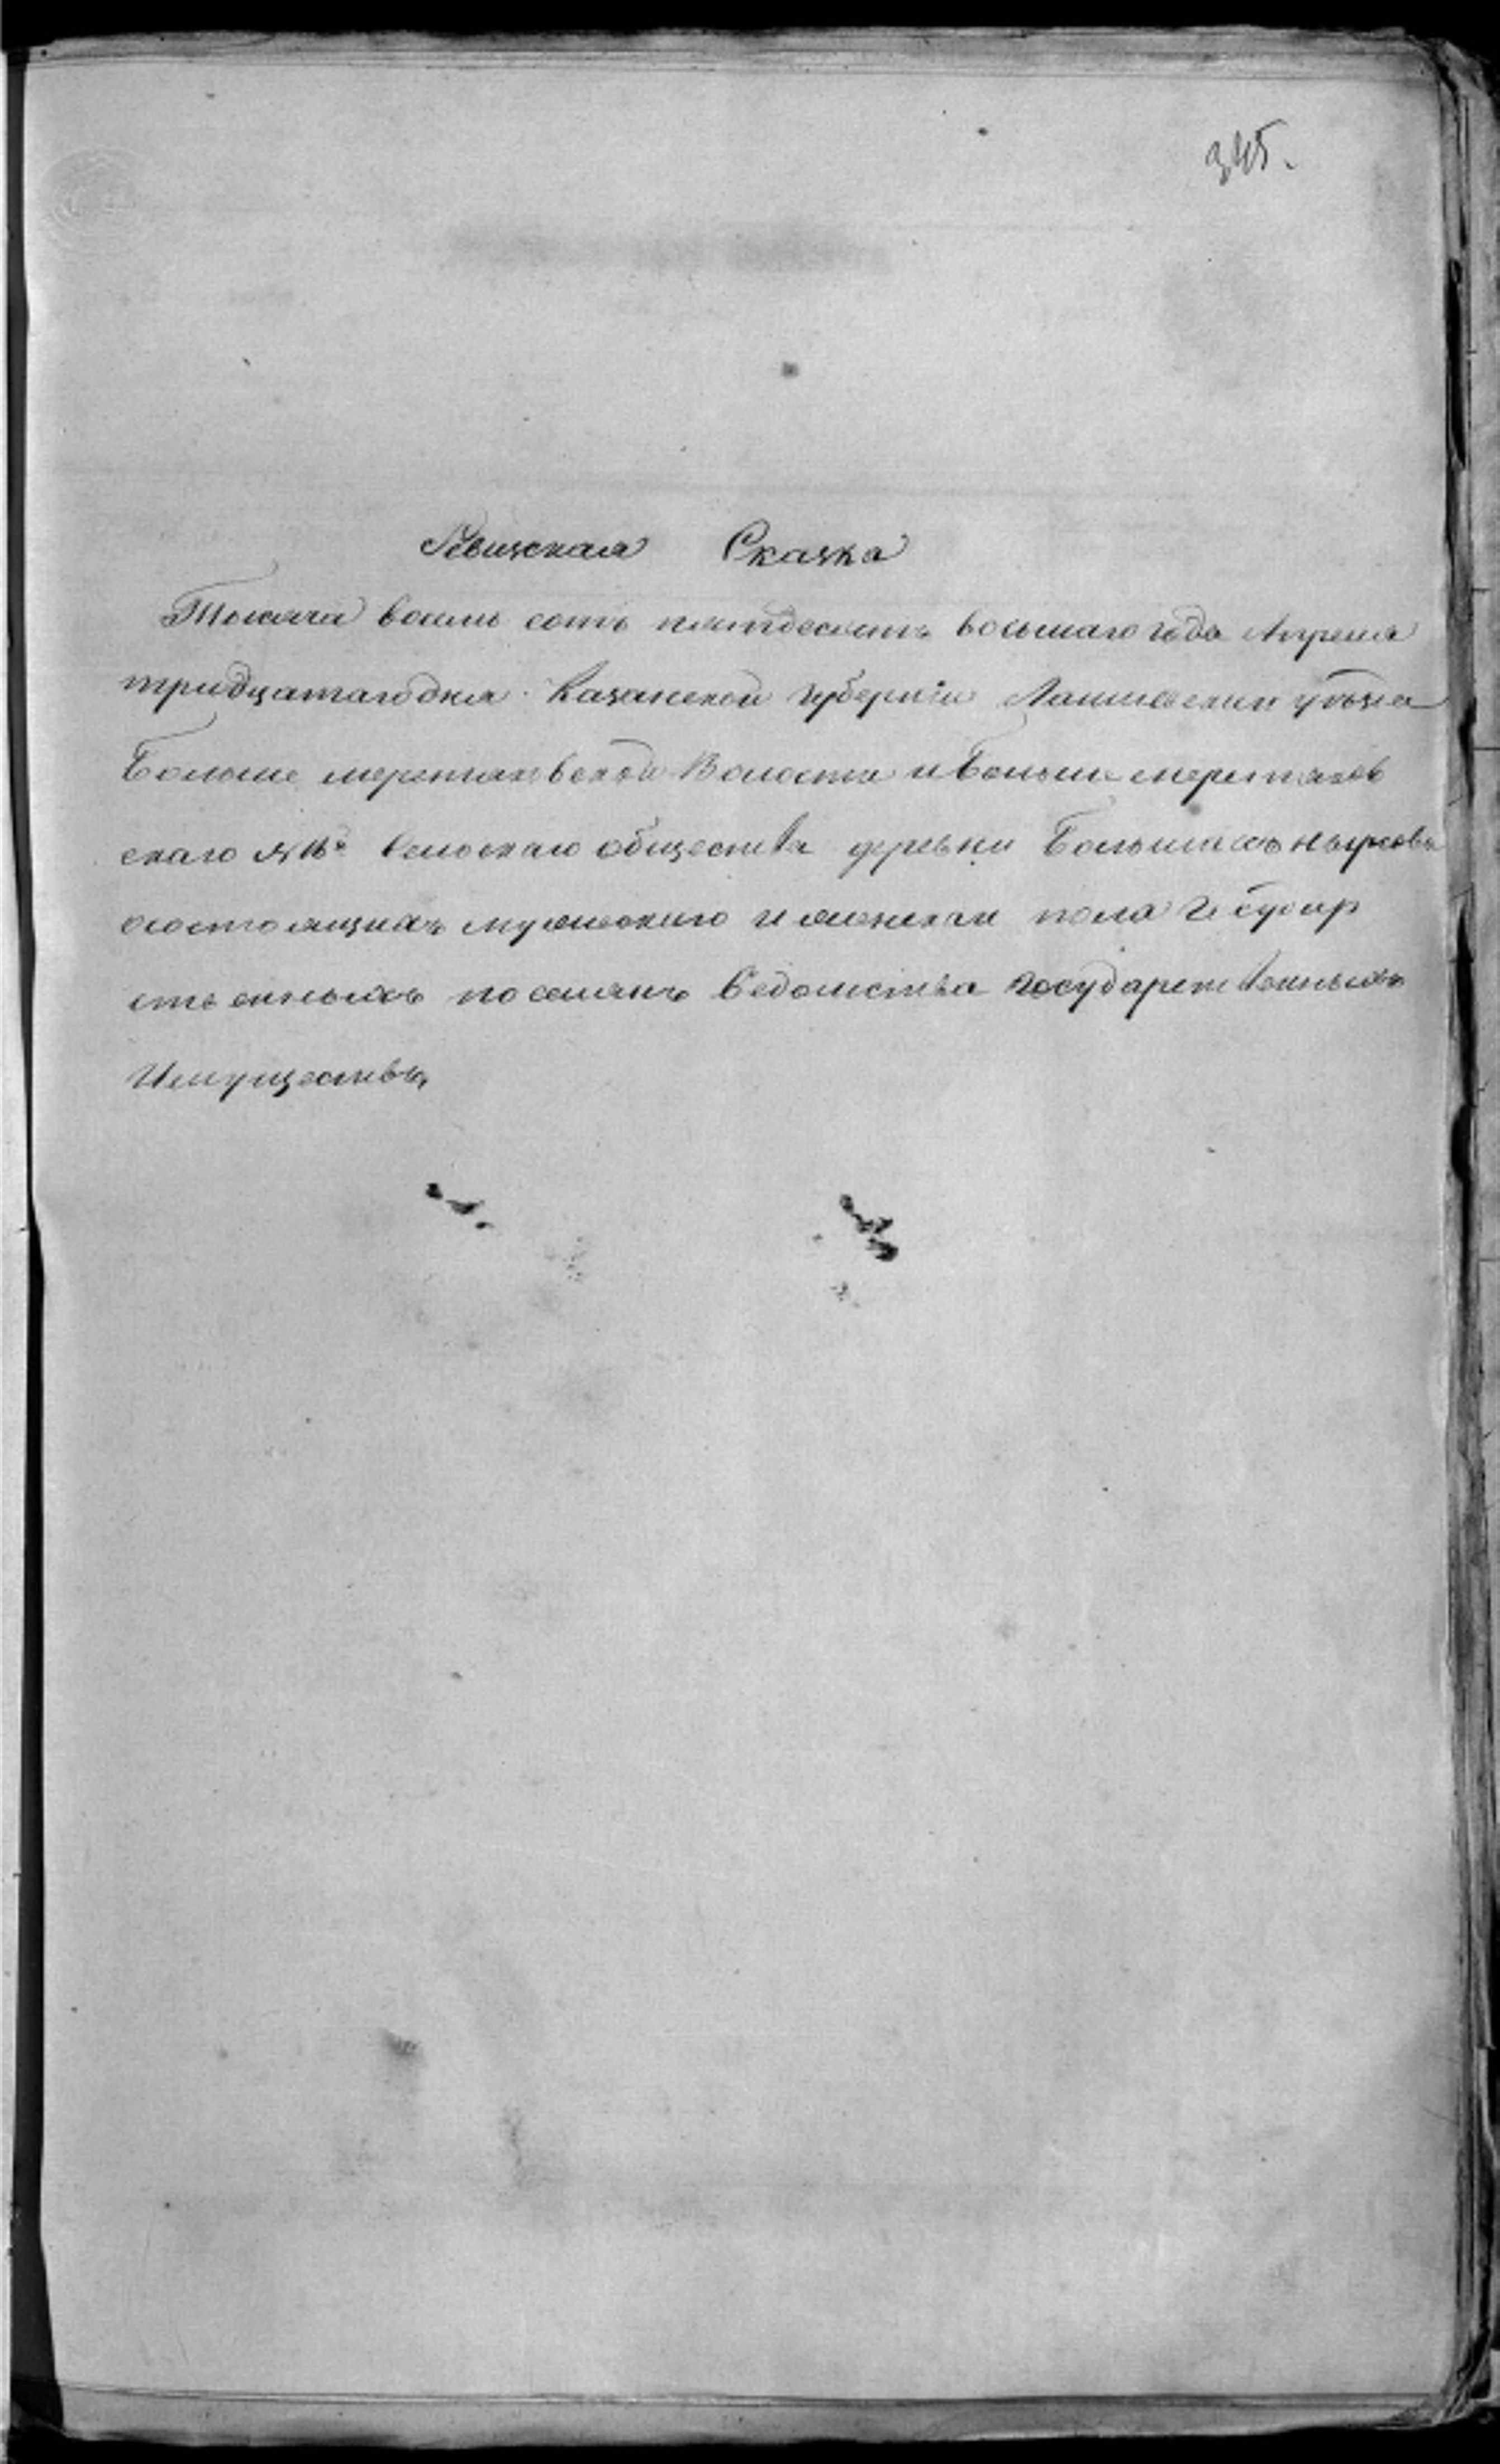 345.
Ревизская Сказка
Тысяча восемь сотъ пятдесятъ восьмаго года Апреля
тридцатаго дня Казанской губерніи Лаишевскаго уѣзда
Больше меретяковской Волости и Больше меретяков
скаго Сельскаго общества деревни Большихъ Нырсовъ
состоящихъ мужескаго и женскаго пола Государ
ственныхъ поселянъ Ведомства Государственныхъ
Имуществъ,